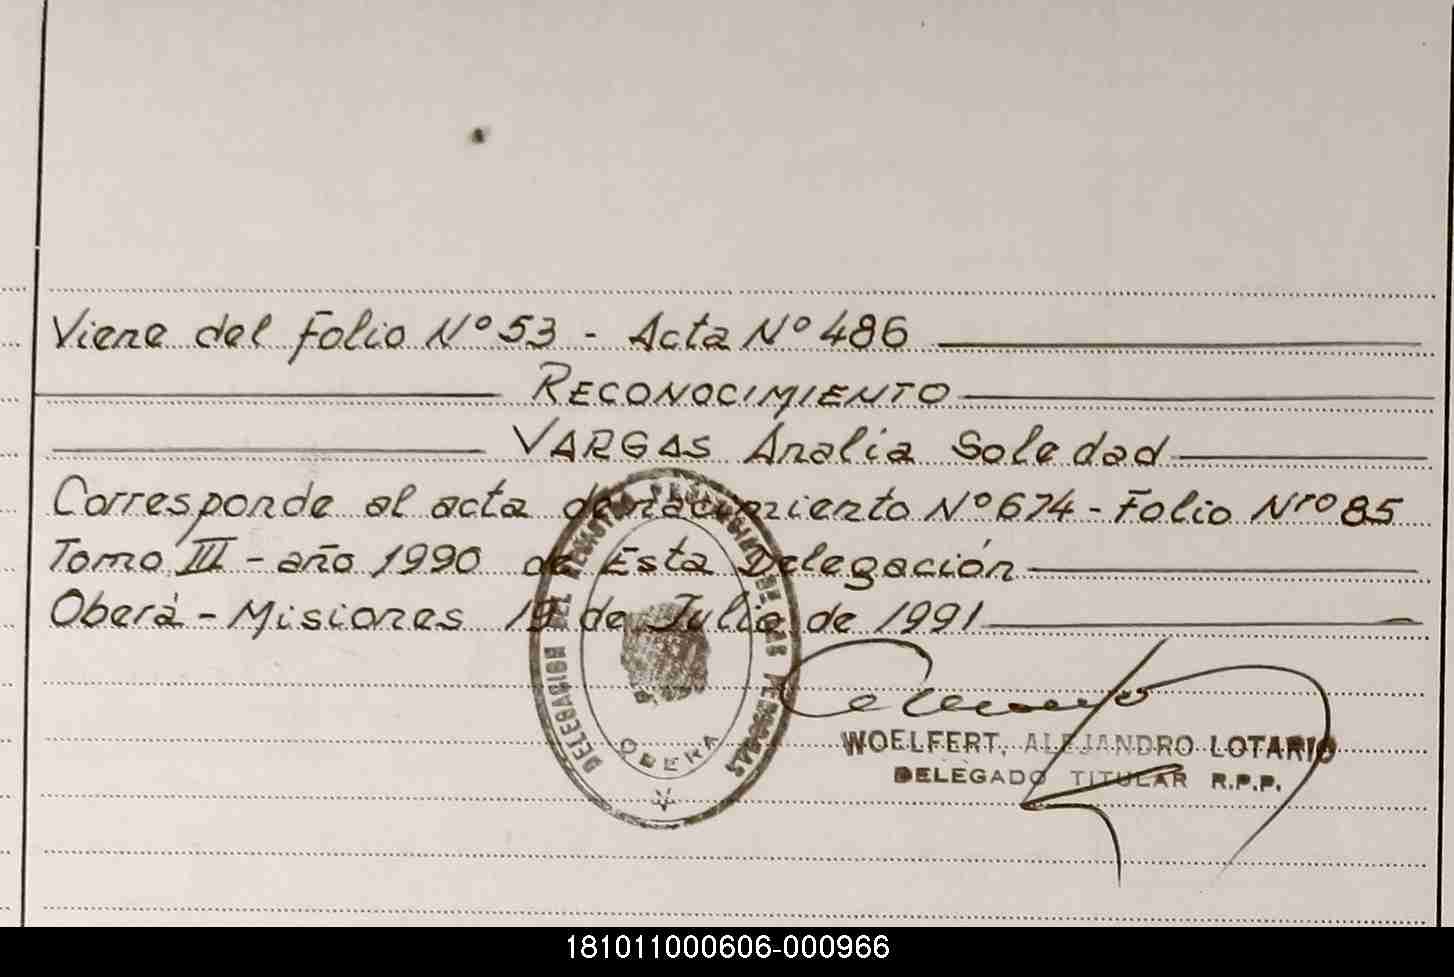 Viene del Folio Nº 53 - Acta Nº 486
RECONOCIMIENTO
VARGAS Analia Soledad
Corresponde al acta de nacimiento Nº 674 - Folio Nro 85
Tomo III - año 1990 de Esta Delegación
Oberá - Misiones 19 de Julio de 1991
DELEGACION DEL REGISTRO PROVINCIAL DE LAS PERSONAS
OBERA
WOELFERT, ALEJANDRO LOTARIO
DELEGADO TITULAR R.P.P.
181011000606-000966